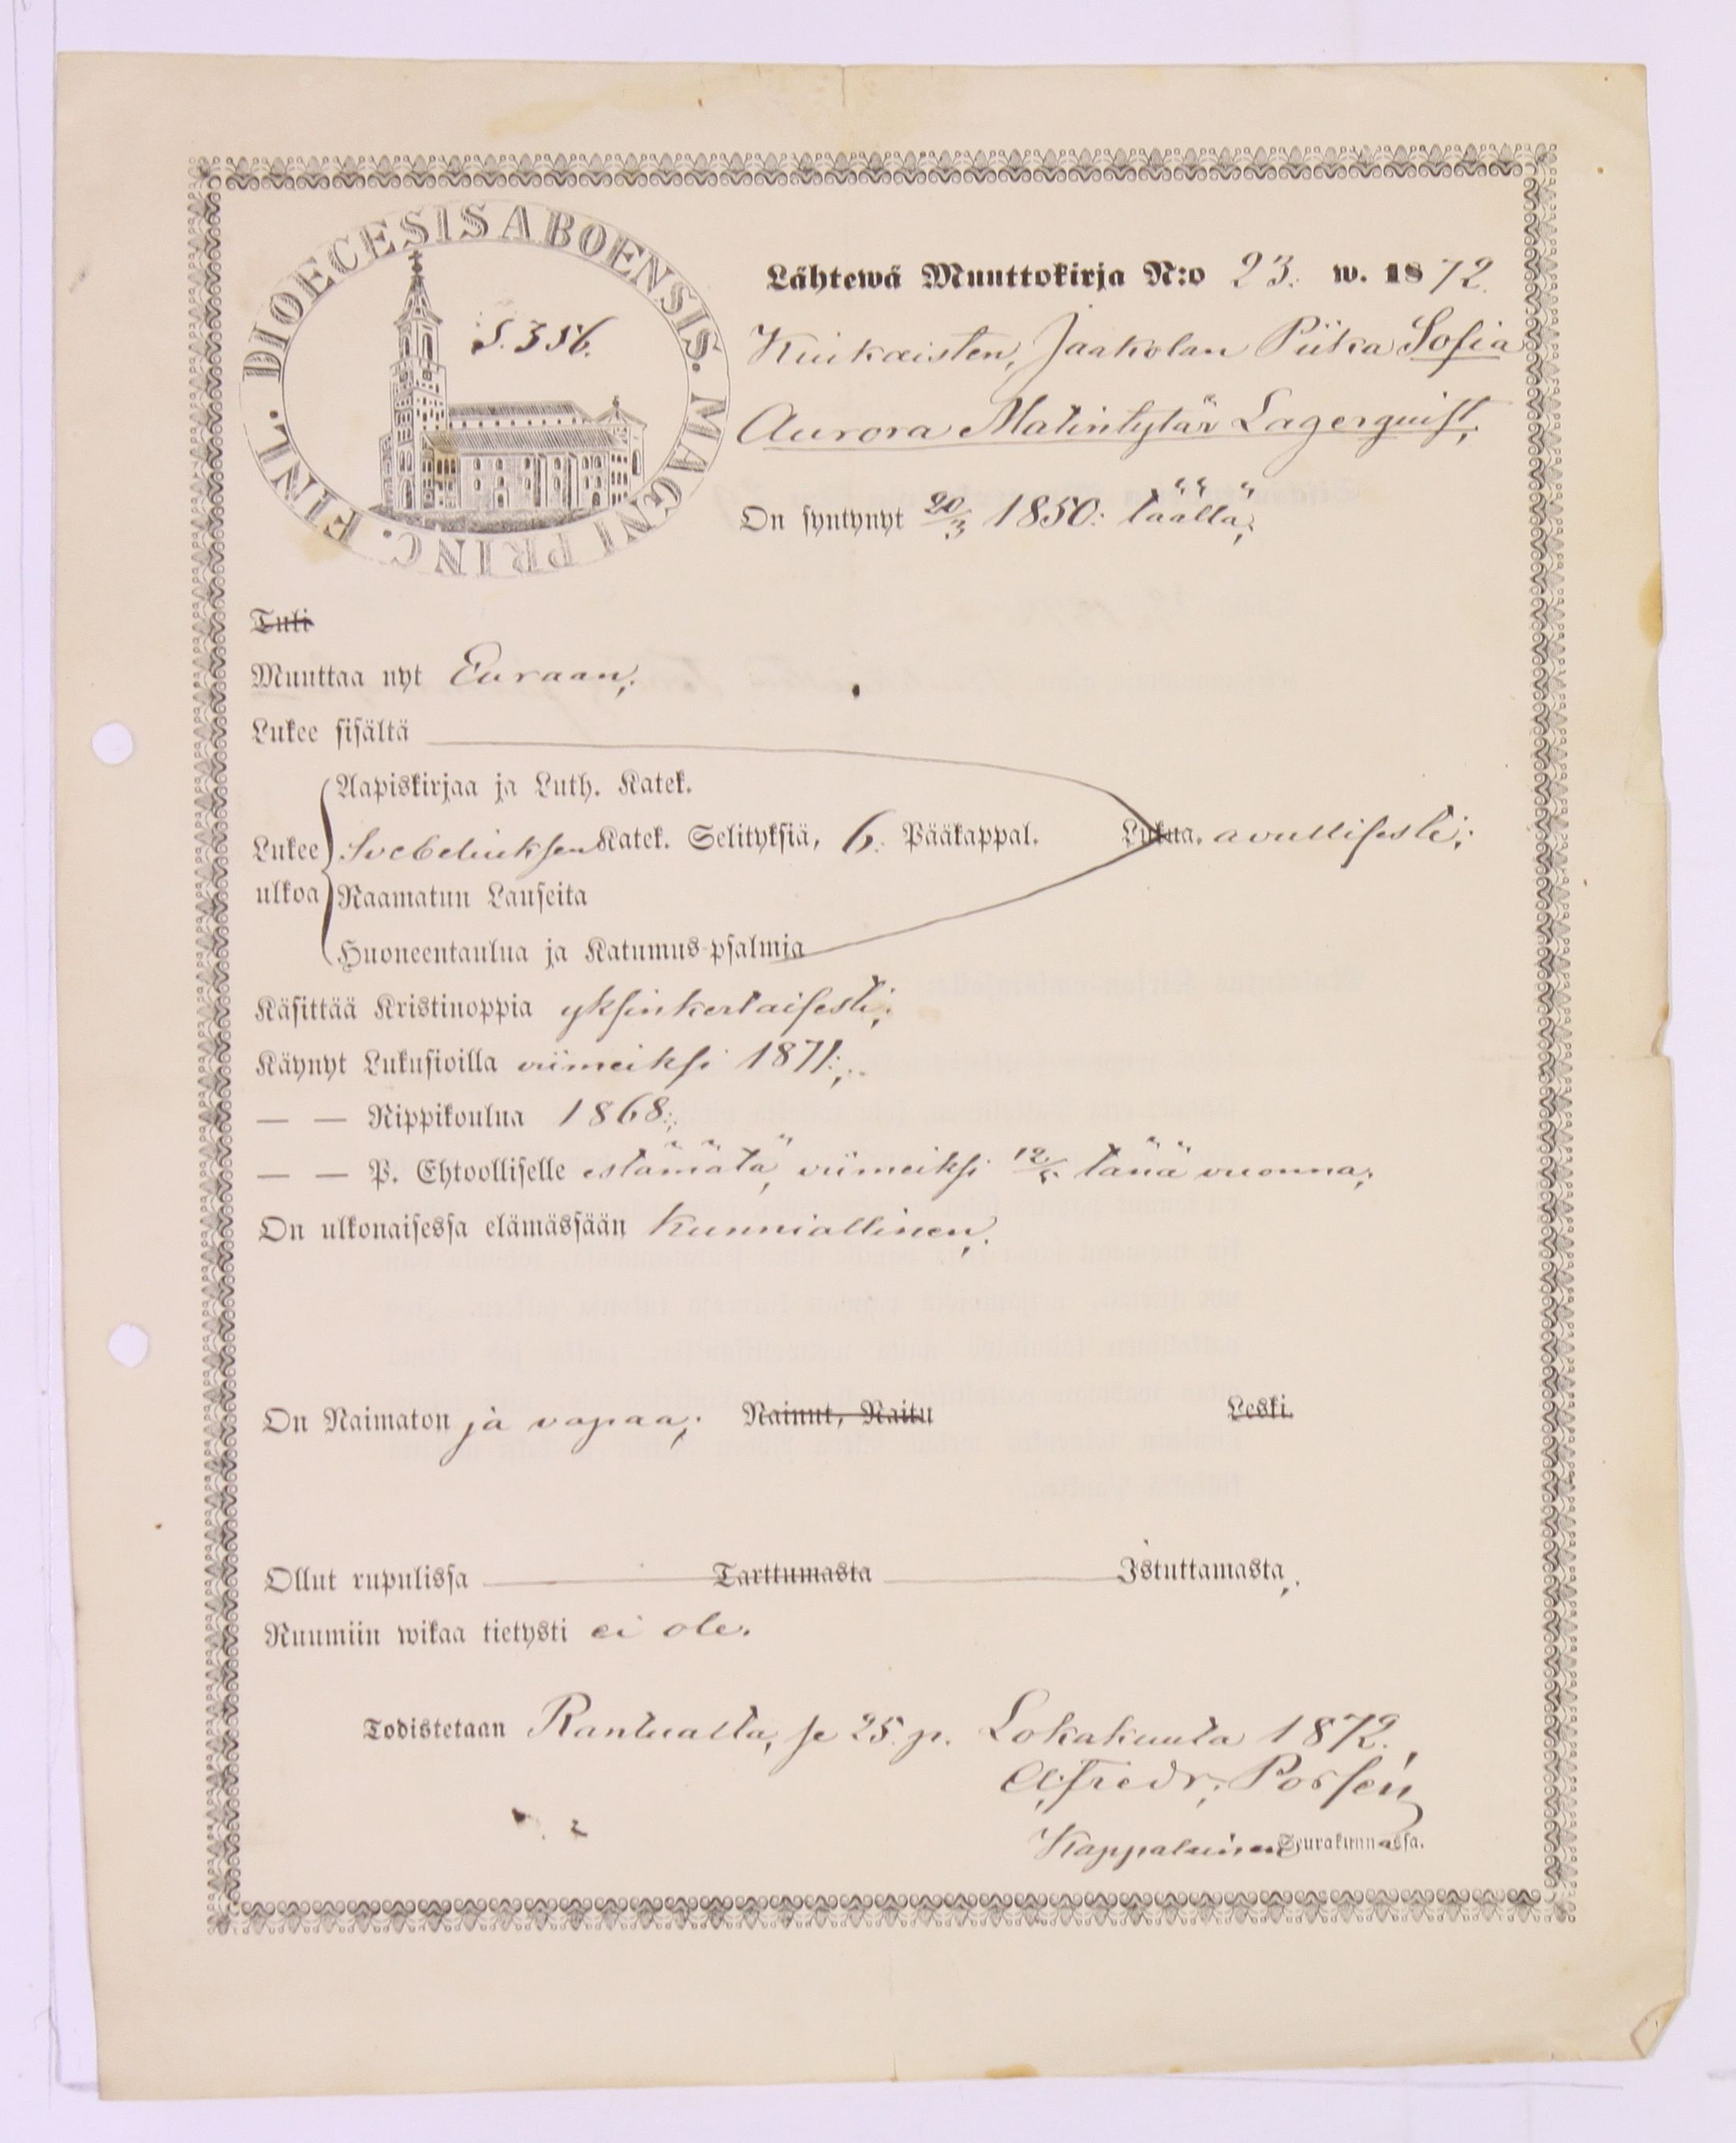 DIOECESIS ABOENSIS. MAGNI PRINC. FINL.
S. 356.
Lähtewä Muuttokirja N:o 23. w. 1872.
Kiukaisten, Jaakolan Piika Sofia
Aurora Matintytär Lagerquist,
On syntynyt 20/3 1850: täällä;
Tuli
Muuttaa nyt Euraan;
Lukee sisältä
Aapiskirjaa ja Luth. Katek.
Lukee ulkoa Svebeliuksen Katek. Selityksiä, 6: Pääkappal. Lukua. avullisesti;
Raamatun Lauseita
Huoneentaulua ja Katumus-psalmia
Käsittää Kristinoppia yksinkertaisesti;
Käynyt Lukusioilla viimeiksi 1871:;
— — Rippikoulua 1868:;
— — P. Ehtoolliselle estämätä, viimeiksi 12/5 tänä vuonna;
On ulkonaisessa elämässään kunniallinen;
On Naimaton ja vapaa; Nainut, Naitu Leski.
Ollut rupulissa Tarttumasta Istuttamasta;
Ruumiin wikaa tietysti ei ole.
Todistetaan Rantualla, se 25. p. Lokakuuta 1872.,
A. Fredr. Possén
Kappalainen Seurakunnassa.